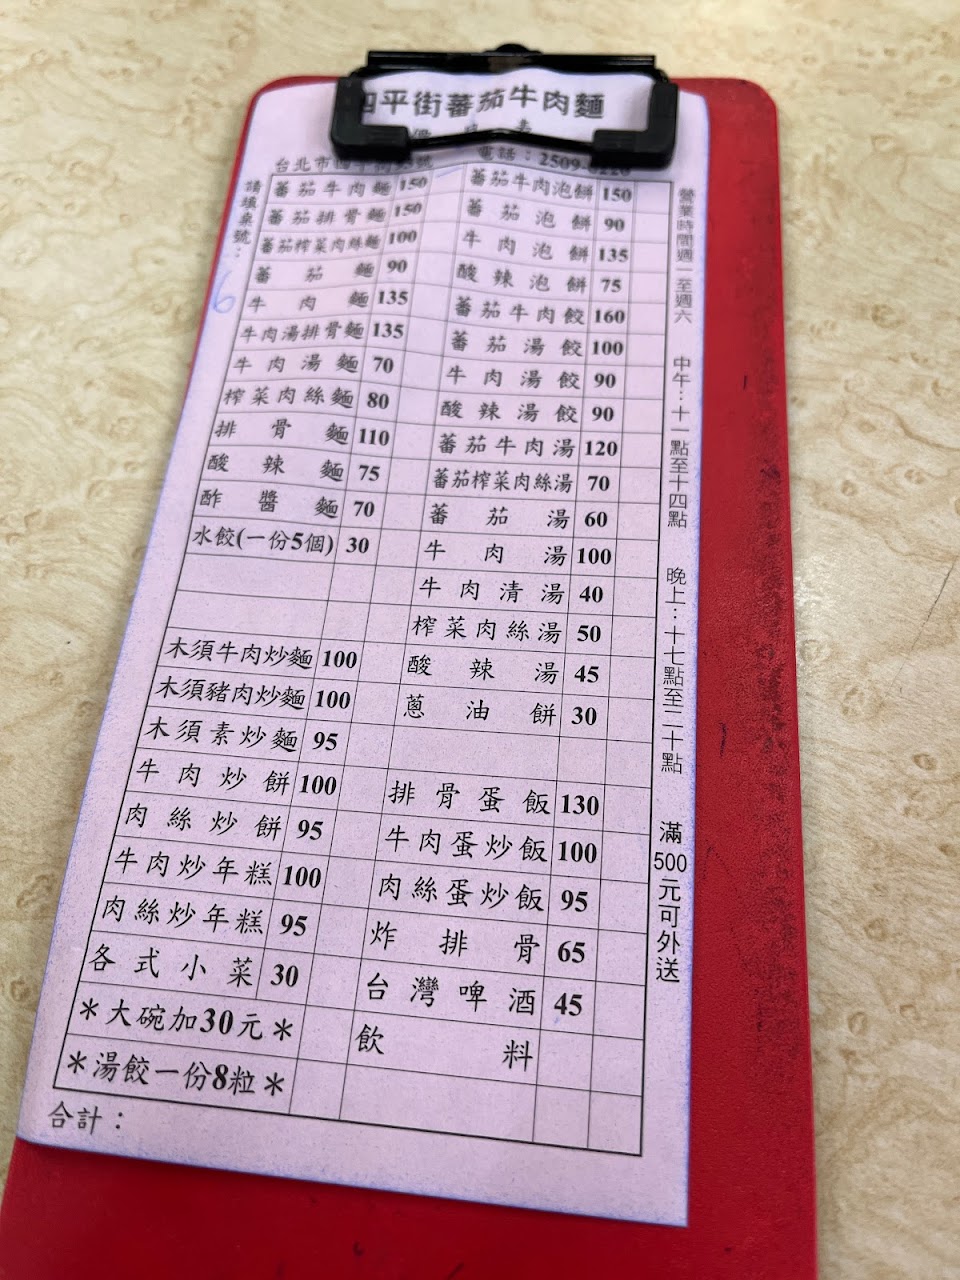 四平街蕃茄牛肉麵
電話：2509-
請填桌號：
6
蕃茄牛肉麵 150
蕃茄排骨麵 150
蕃茄榨菜肉絲麵 100
蕃茄麵 90
牛肉麵 135
牛肉湯排骨麵 135
牛肉湯麵 70
榨菜肉絲麵 80
排骨麵 110
酸辣麵 75
酢醬麵 70
水餃(一份5個) 30
木須牛肉炒麵 100
木須豬肉炒麵 100
木須素炒麵 95
牛肉炒餅 100
肉絲炒餅 95
牛肉炒年糕 100
肉絲炒年糕 95
各式小菜 30
＊大碗加30元＊
＊湯餃一份8粒＊
合計：
蕃茄牛肉泡餅 150
蕃茄泡餅 90
牛肉泡餅 135
酸辣泡餅 75
蕃茄牛肉餃 160
蕃茄湯餃 100
牛肉湯餃 90
酸辣湯餃 90
蕃茄牛肉湯 120
蕃茄榨菜肉絲湯 70
蕃茄湯 60
牛肉湯 100
牛肉清湯 40
榨菜肉絲湯 50
酸辣湯 45
蔥油餅 30
排骨蛋飯 130
牛肉蛋炒飯 100
肉絲蛋炒飯 95
炸排骨 65
台灣啤酒 45
飲料
營業時間週一至週六 中午：十一點至十四點 晚上：十七點至二十點 滿500元可外送